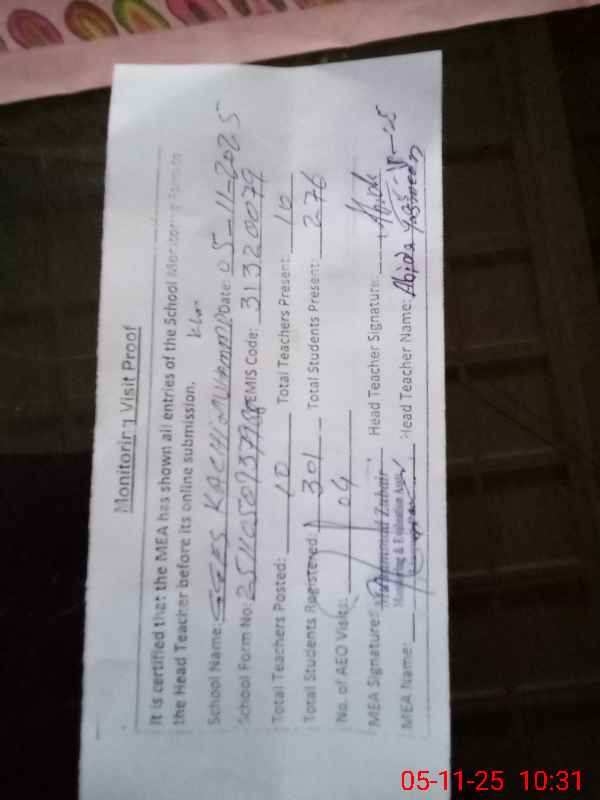 Monitoring Visit Proof
It is certified that the MEA has shown all entries of the School Monitoring Form to
the Head Teacher before its online submission.
School Name: GGES KACHI Date: 05-11-2025
School Form No: EMIS Code: 31320079
Total Teachers Posted: 10 Total Teachers Present: 10
Total Students Registered: 301 Total Students Present: 276
No. of AEO Visits: 04
MEA Signature: Muhammad Zubair Head Teacher Signature: Abida
Monitoring & Evaluation Asstt
MEA Name: Head Teacher Name: Abida Yasmeen
05-11-25 10:31